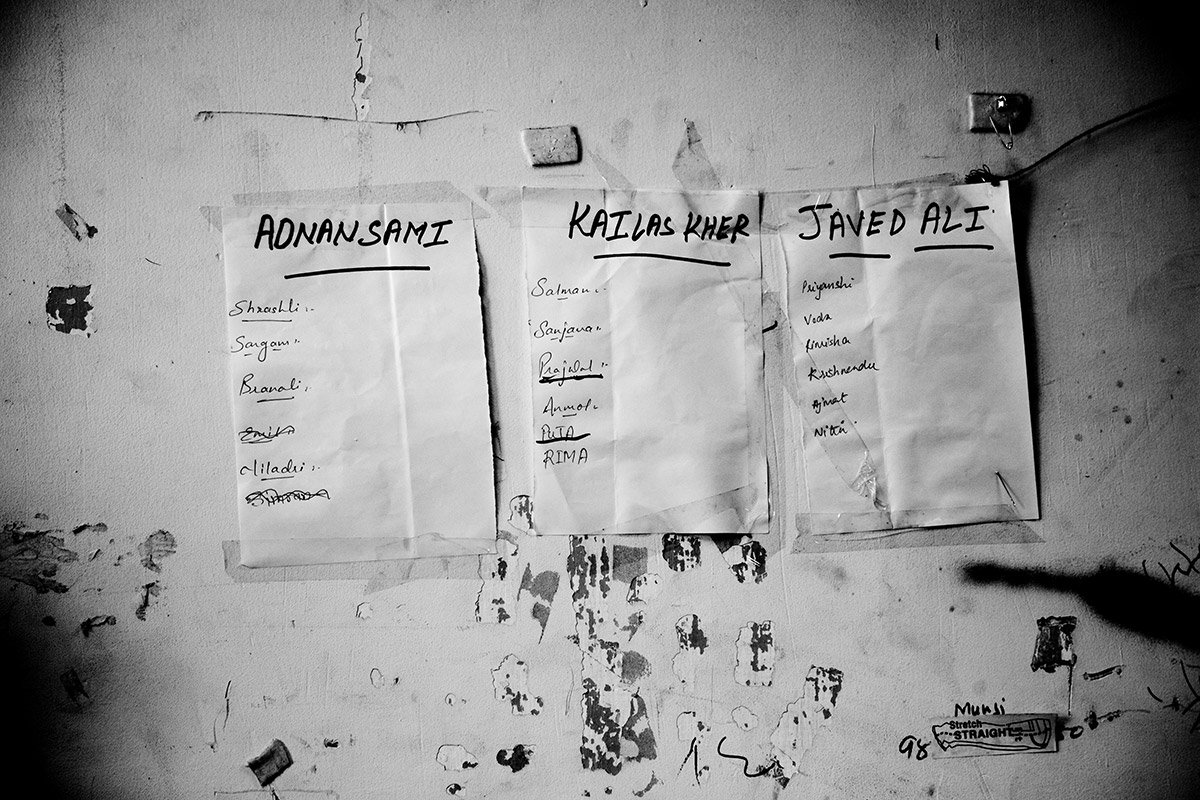 ADNAN SAMI
Shrashti :-
Sargam :-
Branali :-
Niladri :-
KAILAS KHER
Salman :-
Sanjana :-
Prajwal :-
Anmol :-
PUJA
RIMA
JAVED ALI
Priyanshi
Veda
Rimisha
Krishnendu
Ajmat
Nitin
Munsi
Stretch
STRAIGHT
98